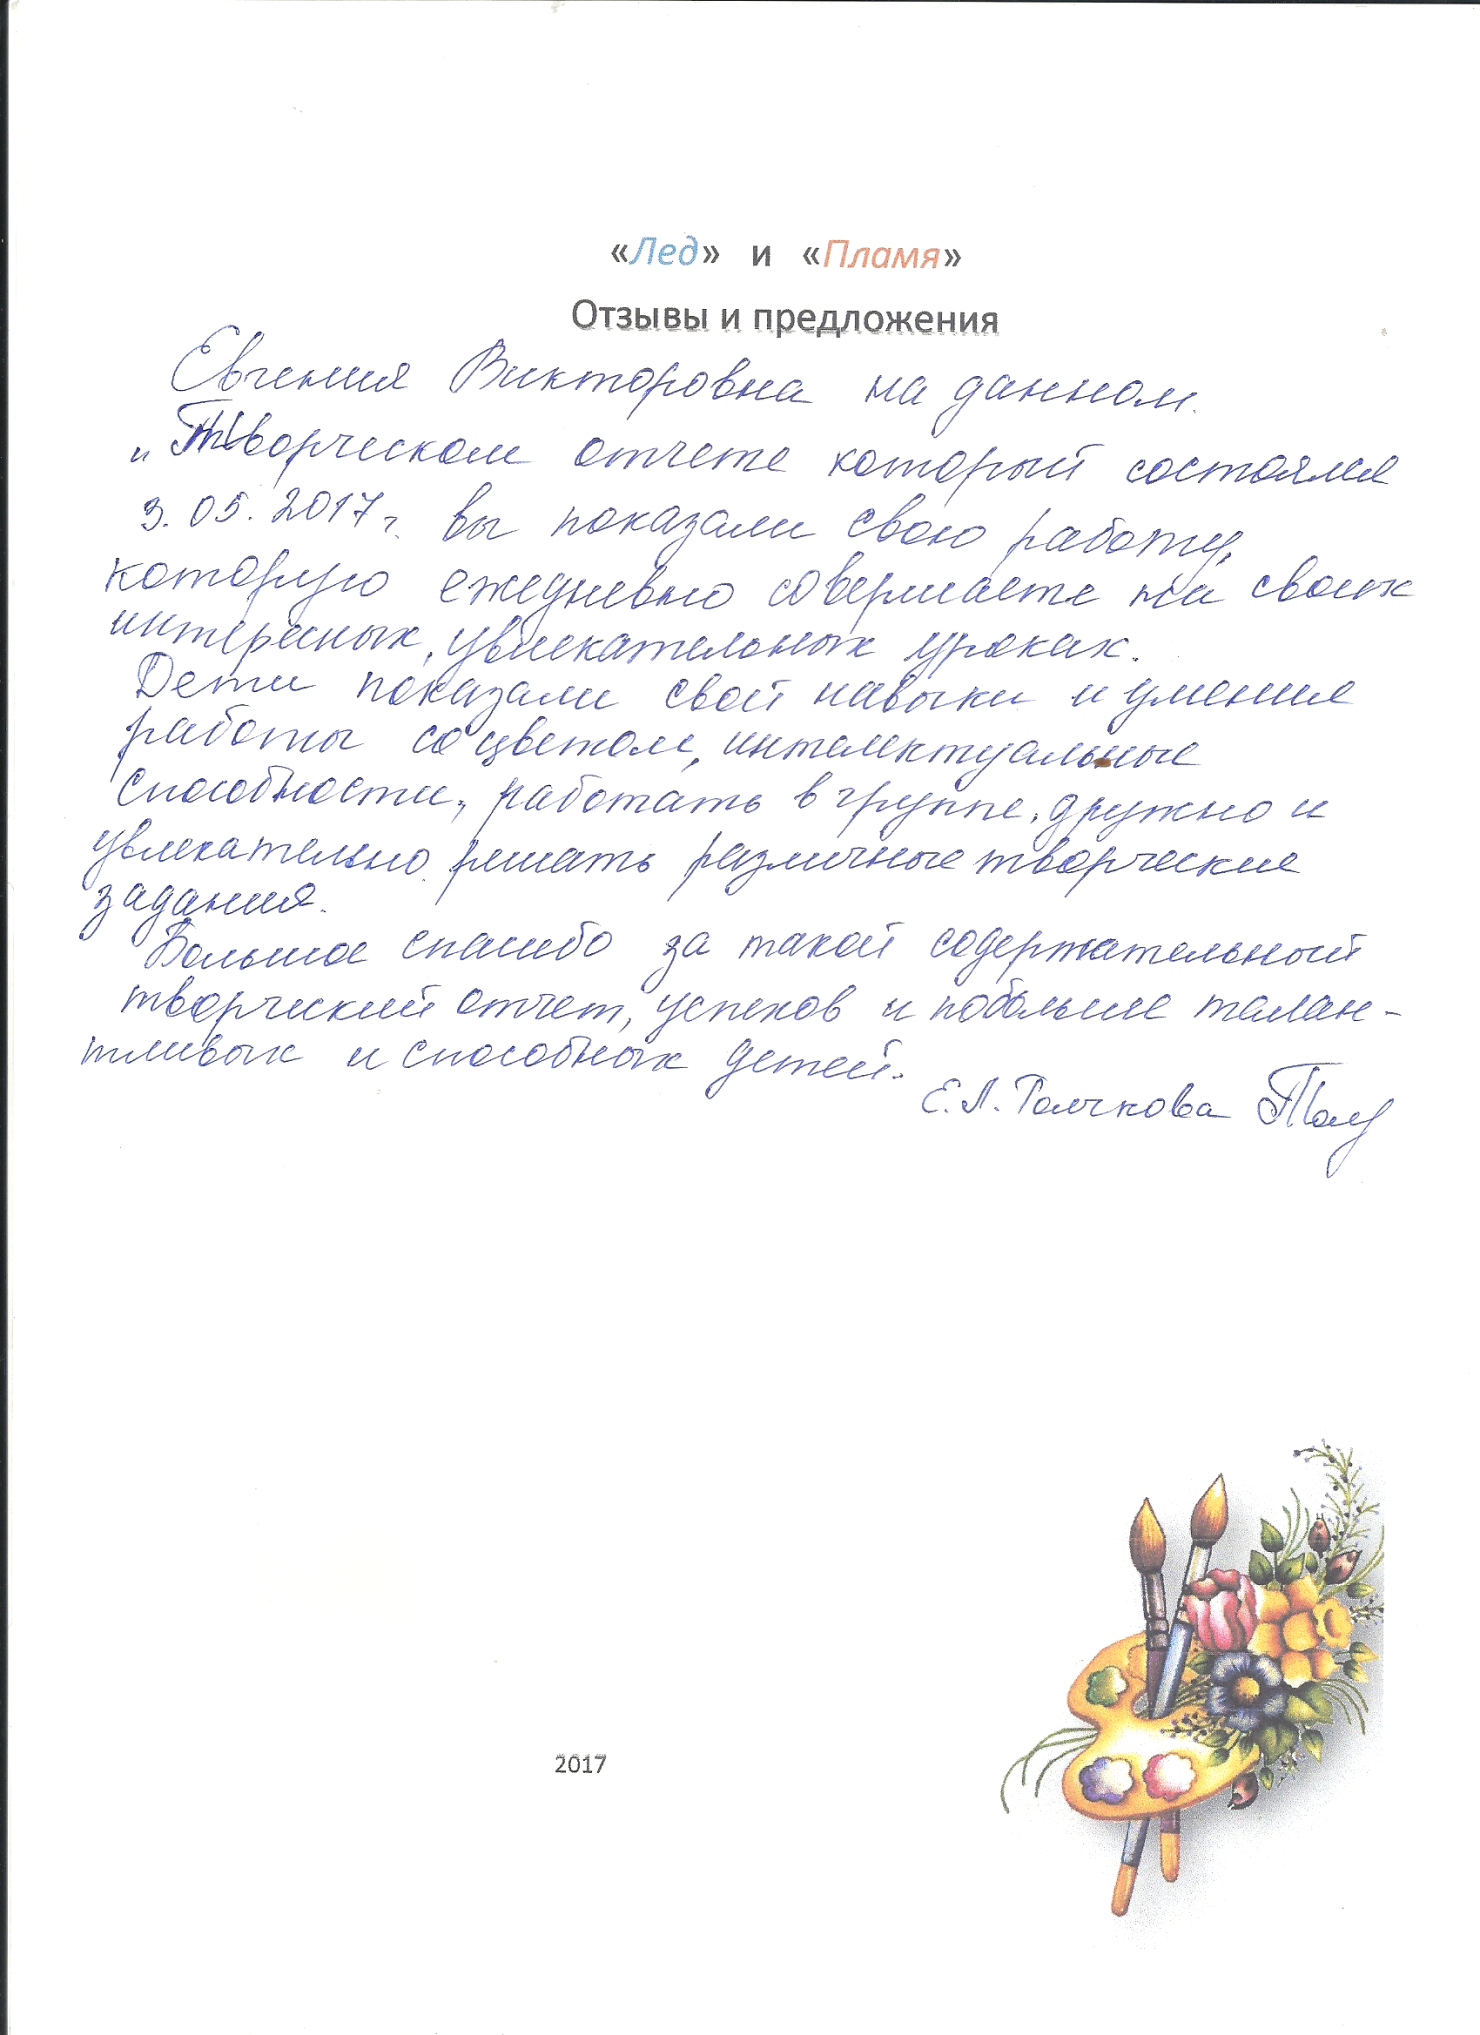 «Лед» и «Пламя»
Отзывы и предложения
Евгения Викторовна на данном
„Творческом отчете который состоялся
3.05.2017г. вы показали свою работу,
которую ежедневно совершаете на своих
интересных, увлекательных уроках.
Дети показали свой навыки и умения
работы со цветом, интелектуальные
способности, работать в группе, дружно и
увлекательно решать различные творческие
задания.
Большое спасибо за такой содержательный
творческий отчет, успехов и побольше талан-
тливых и способных детей.
Е.Л.
2017